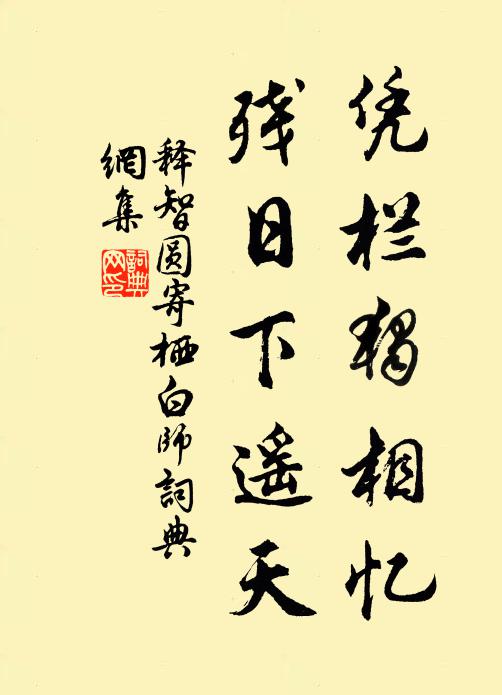 凭栏独相忆
残日下遥天
释智圆寄栖白师词典
網集
詞典
网印